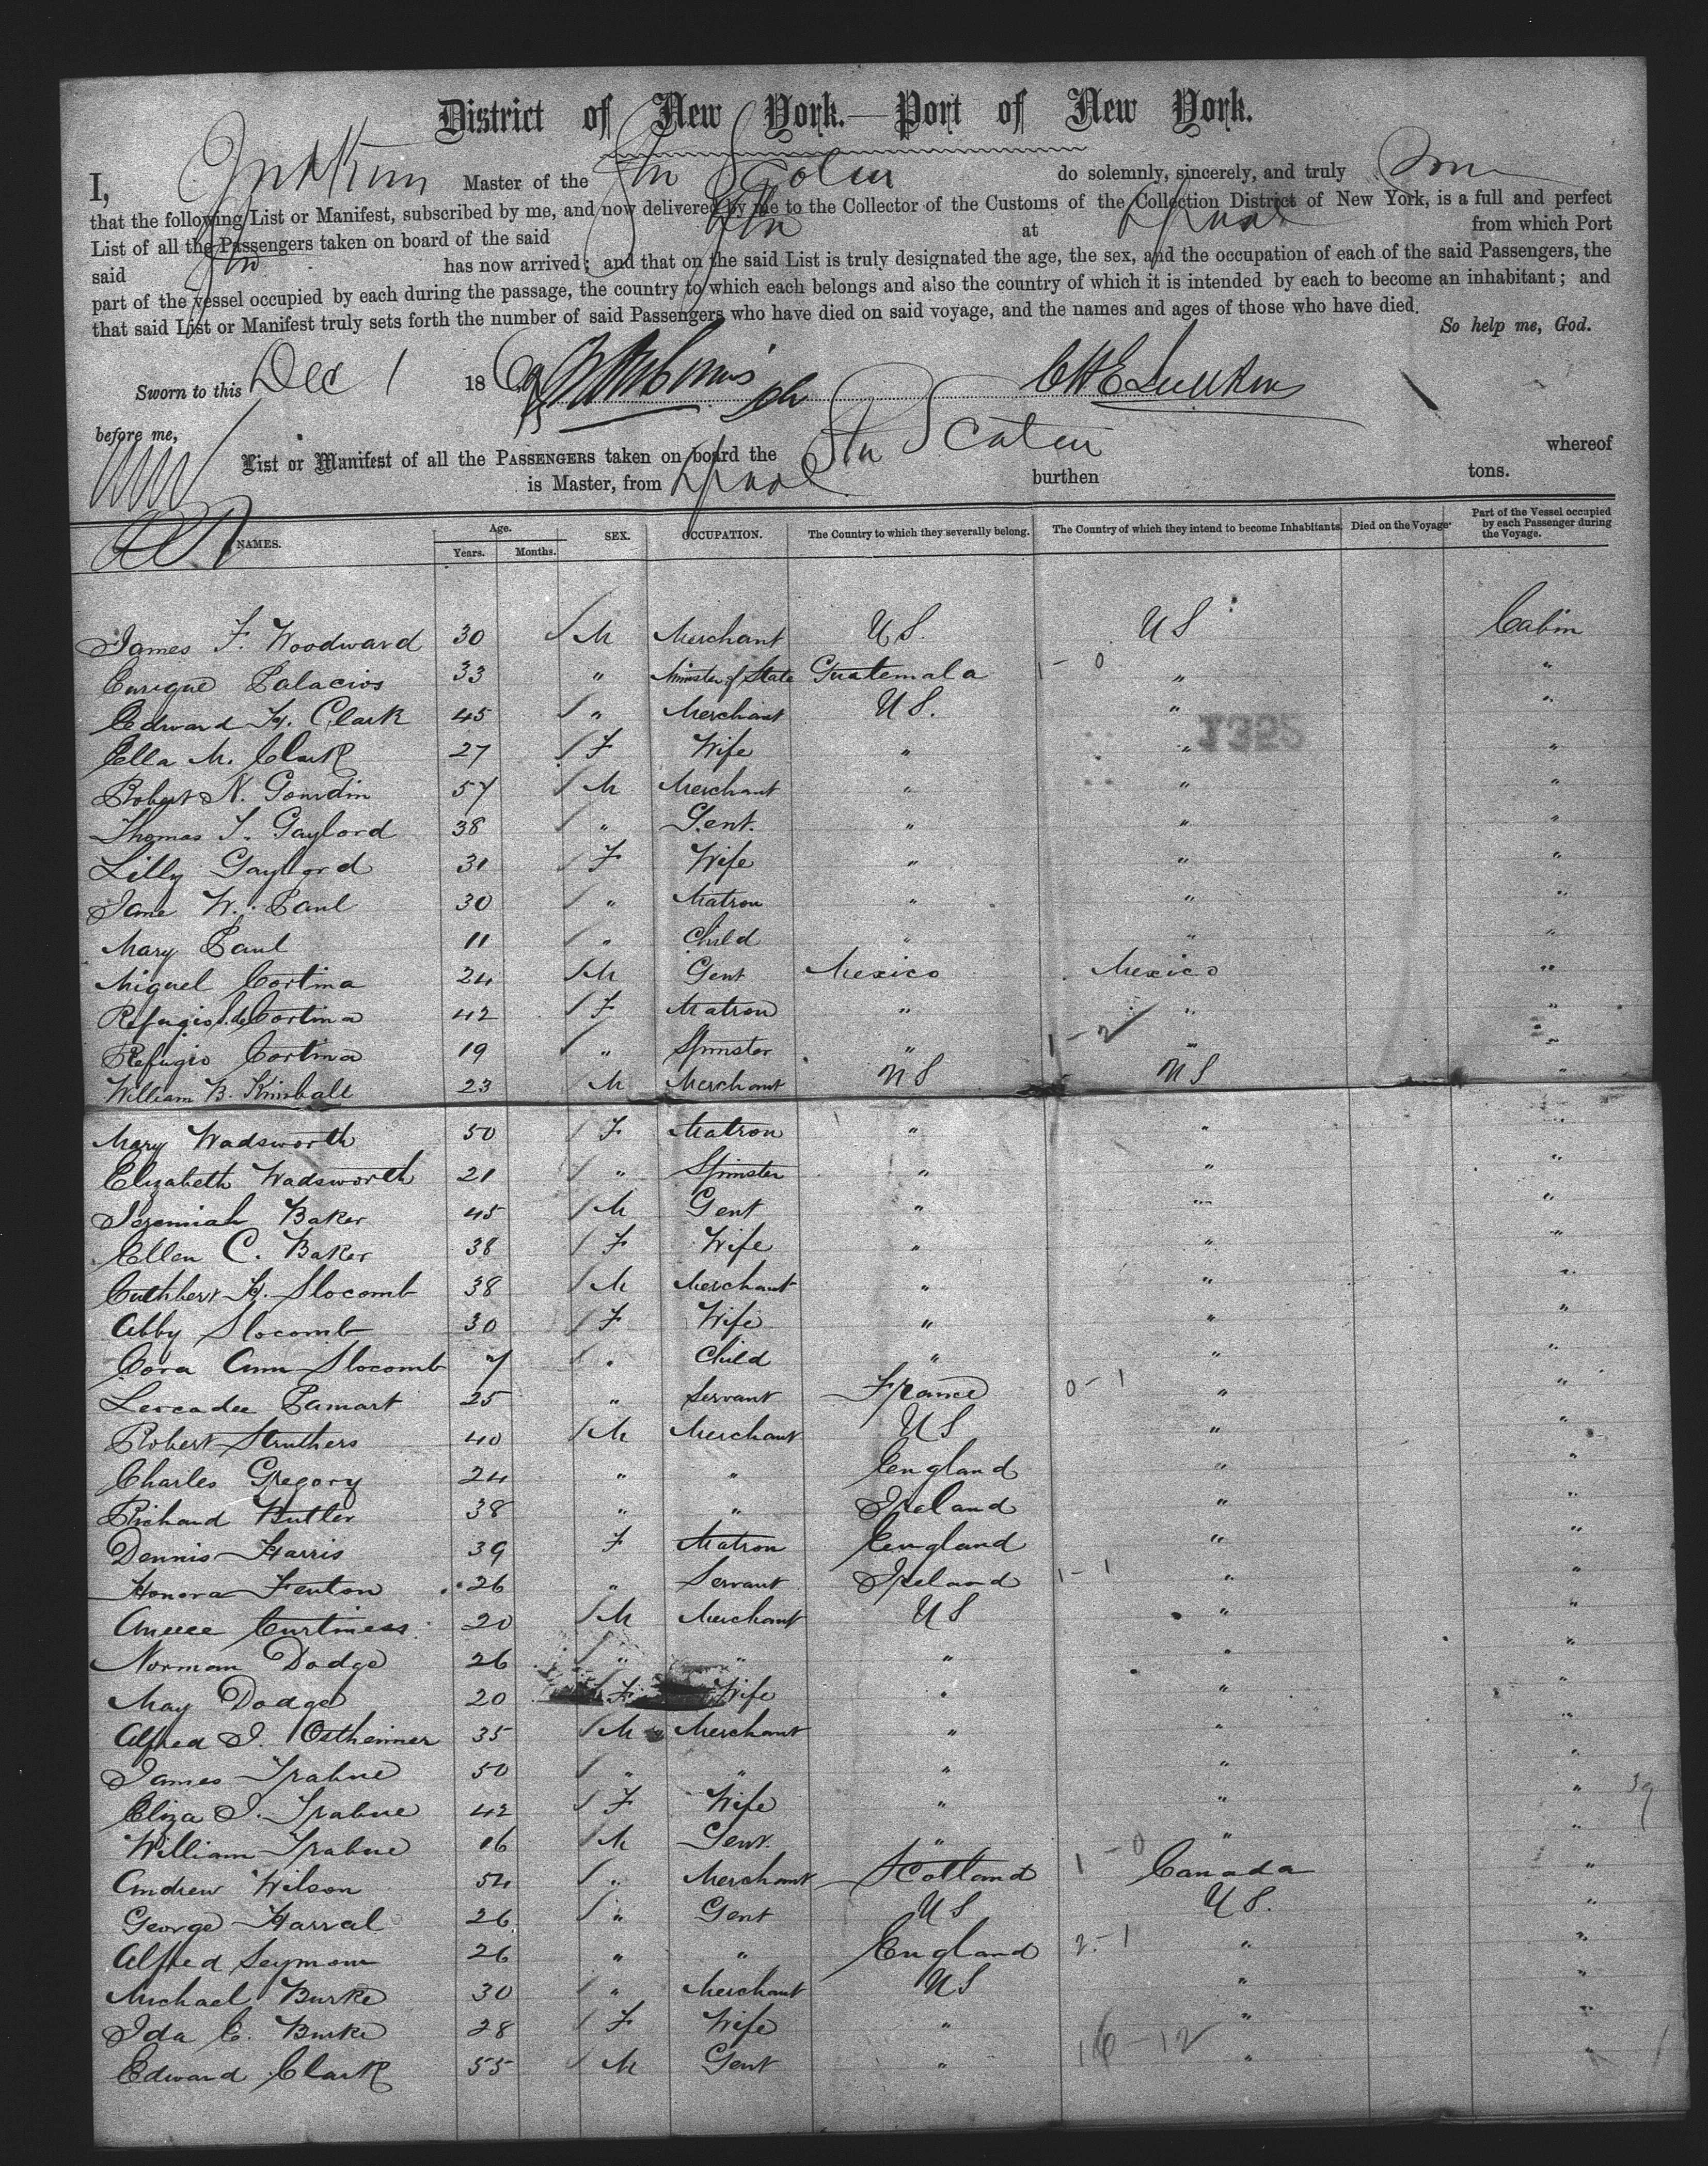 District of New York.—Port of New York.
I, Master of the Str Scotia do solemnly, sincerely, and truly
that the following List or Manifest, subscribed by me, and now delivered by me to the Collector of the Customs of the Collection District of New York, is a full and perfect
List of all the Passengers taken on board of the said Str at Lpool from which Port
said Str has now arrived; and that on the said List is truly designated the age, the sex, and the occupation of each of the said Passengers, the
part of the vessel occupied by each during the passage, the country to which each belongs and also the country of which it is intended by each to become an inhabitant; and
that said List or Manifest truly sets forth the number of said Passengers who have died on said voyage, and the names and ages of those who have died.
So help me, God.
Sworn to this Dec 1 1869
before me,
List or Manifest of all the PASSENGERS taken on board the Str Scotia whereof
is Master, from Lpool burthen tons.
NAMES. Age. Years. Months. SEX. OCCUPATION. The Country to which they severally belong. The Country of which they intend to become Inhabitants. Died on the Voyage. Part of the Vessel occupied by each Passenger during the Voyage.
James F. Woodward 30 M Merchant U S. U S Cabin
Enrique Palacios 33 " Minister of State Guatemala 1-0 " "
Edward H. Clark 45 " Merchant U S. " "
1352
Ella M. Clark 27 F Wife " " "
Robert N. Gourdin 57 M Merchant " " "
Thomas T. Gaylord 38 " Gent. " " "
Lilly Gaylord 31 F Wife " " "
Jane W. Paul 30 " Matron " " "
Mary Paul 11 " Child " " "
Miguel Cortina 24 M Gent Mexico Mexico "
Refugio de Cortina 42 F Matron " " "
Refugio Cortina 19 " Spinster " 1-2 " "
William B. Kimball 23 M Merchant U S U S "
Mary Wadsworth 50 F Matron " " "
Elizabeth Wadsworth 21 " Spinster " " "
Jeremiah Baker 45 M Gent " " "
Ellen C. Baker 38 F Wife " " "
Cuthbert H. Slocomb 38 M Merchant " " "
Abby Slocomb 30 F Wife " " "
Cora Ann Slocomb 7 " Child " " "
Leocadee Pamart 25 " Servant France 0-1 " "
Robert Struthers 40 M Merchant U S " "
Charles Gregory 24 " " England " "
Richard Butler 38 " " Ireland " "
Dennis Harris 39 F Matron England " "
Honora Fenton 26 " Servant Ireland 1-1 " "
20 M Merchant U S " "
Norman Dodge 26 " " " " "
May Dodge 20 F Wife " " "
Alfred J. Ostheimer 35 M Merchant " " "
James Trabue 50 " " " " "
Eliza J. Trabue 42 F Wife " " " 39
William Trabue 16 M Gent. " " "
Andrew Wilson 54 " Merchant Scotland 1-0 Canada "
George Harral 26 " Gent U S U S. "
Alfred Seymour 26 " " England 2-1 " "
Michael Burke 30 " Merchant U S " "
Ida C. Burke 28 F Wife " " "
16-12
Edward Clark 55 M Gent " " "